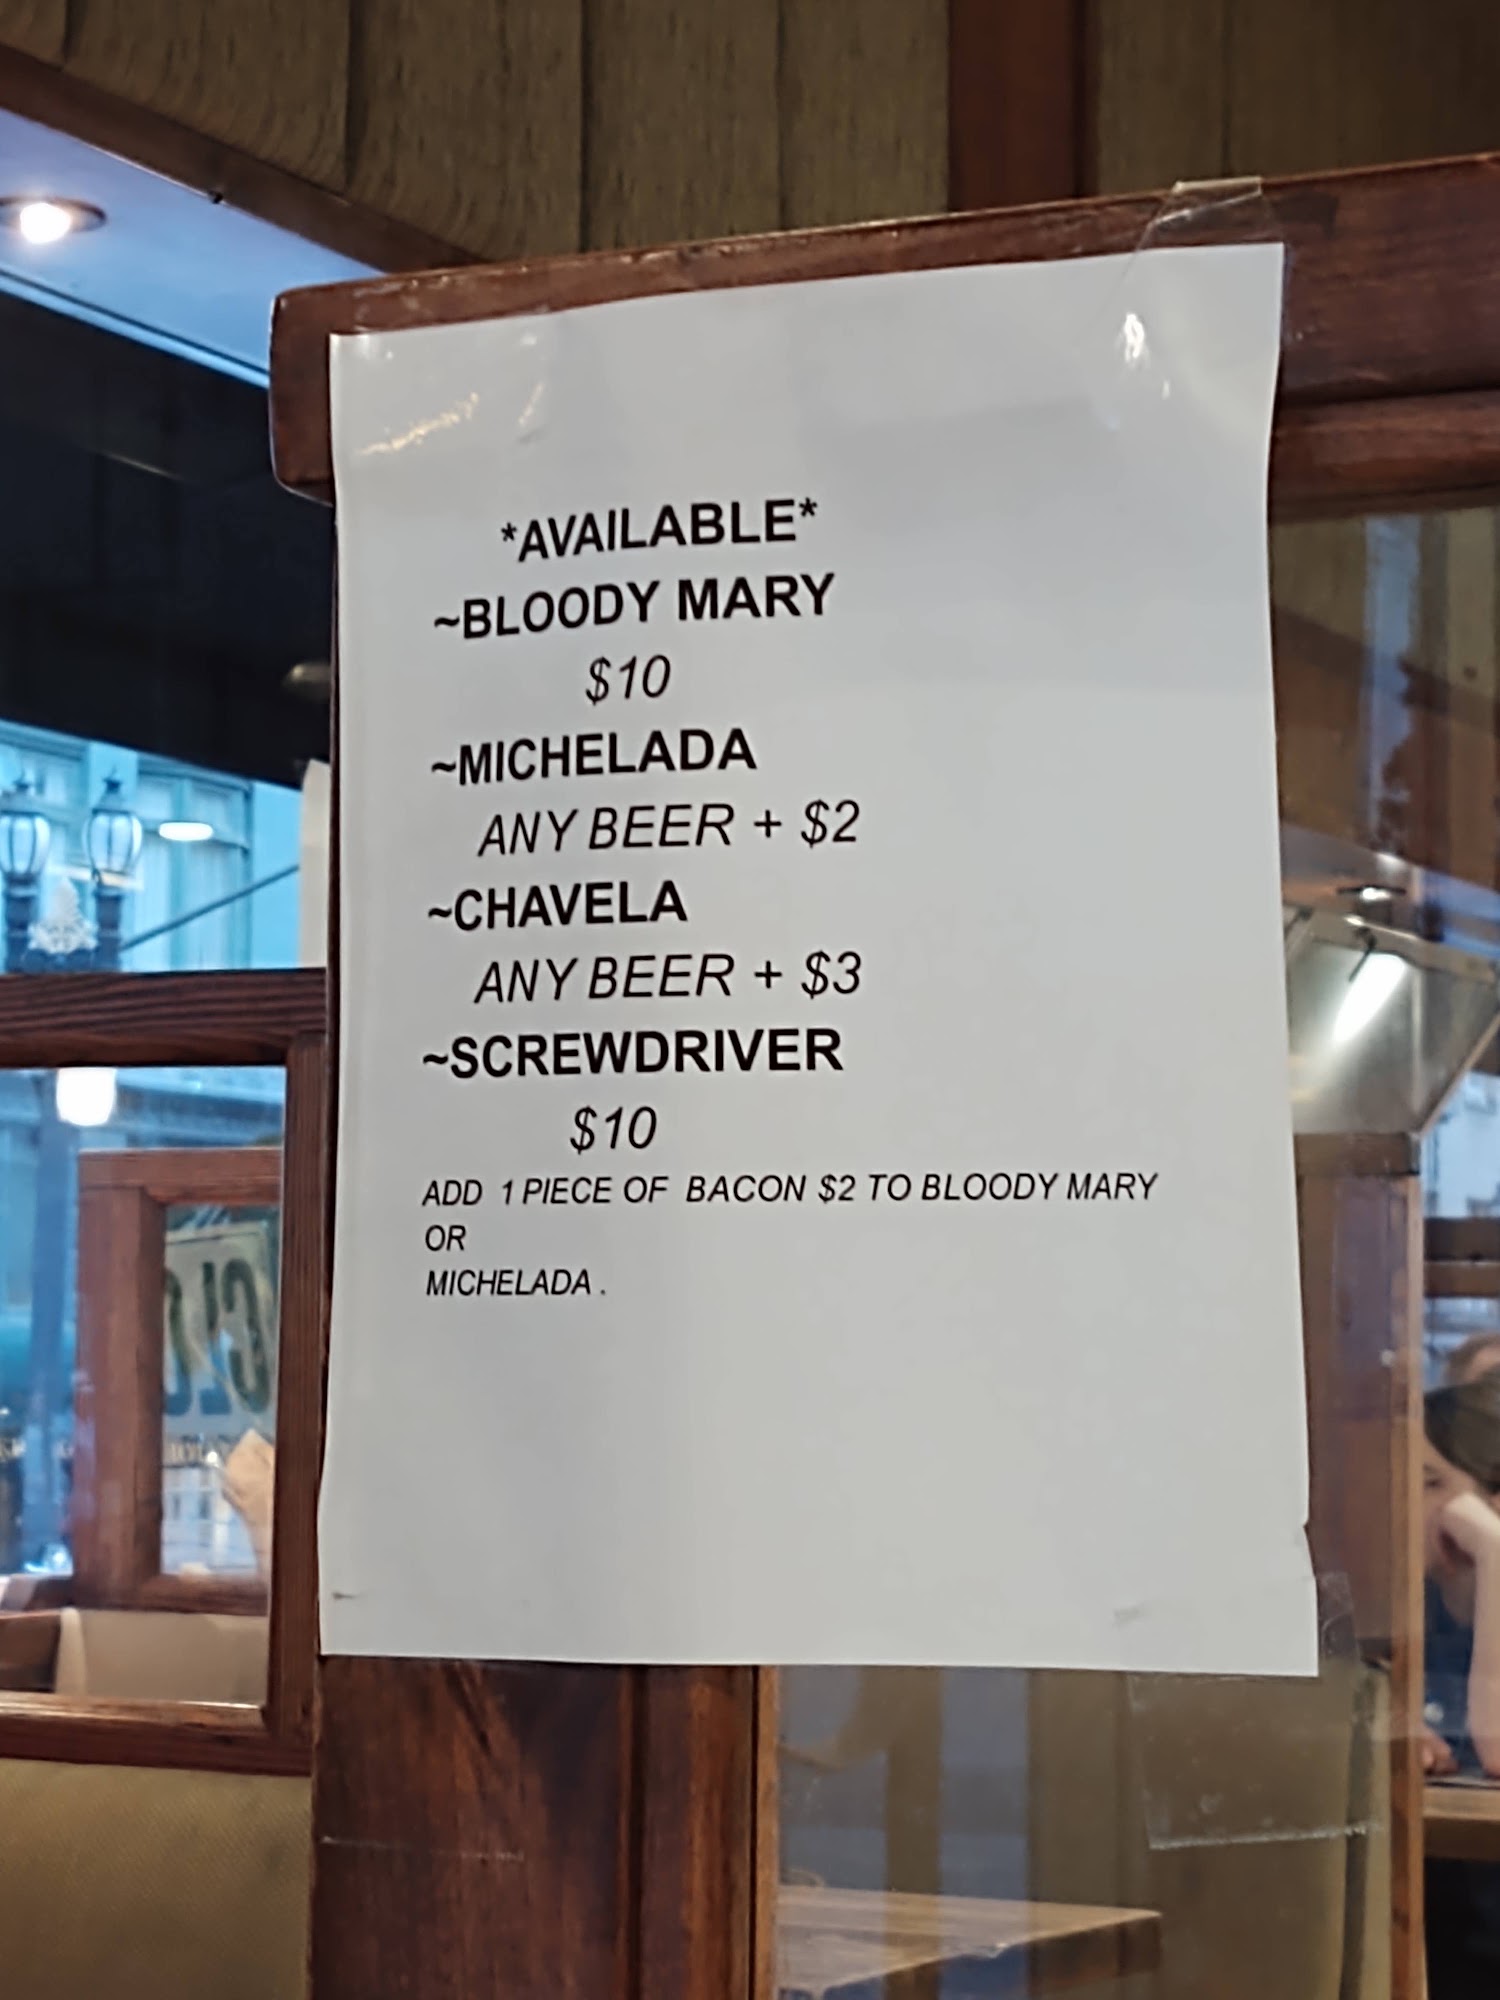 *AVAILABLE*
~BLOODY MARY
$10
~MICHELADA
ANY BEER + $2
~CHAVELA
ANY BEER + $3
~SCREWDRIVER
$10
ADD 1 PIECE OF BACON $2 TO BLOODY MARY
OR
MICHELADA .